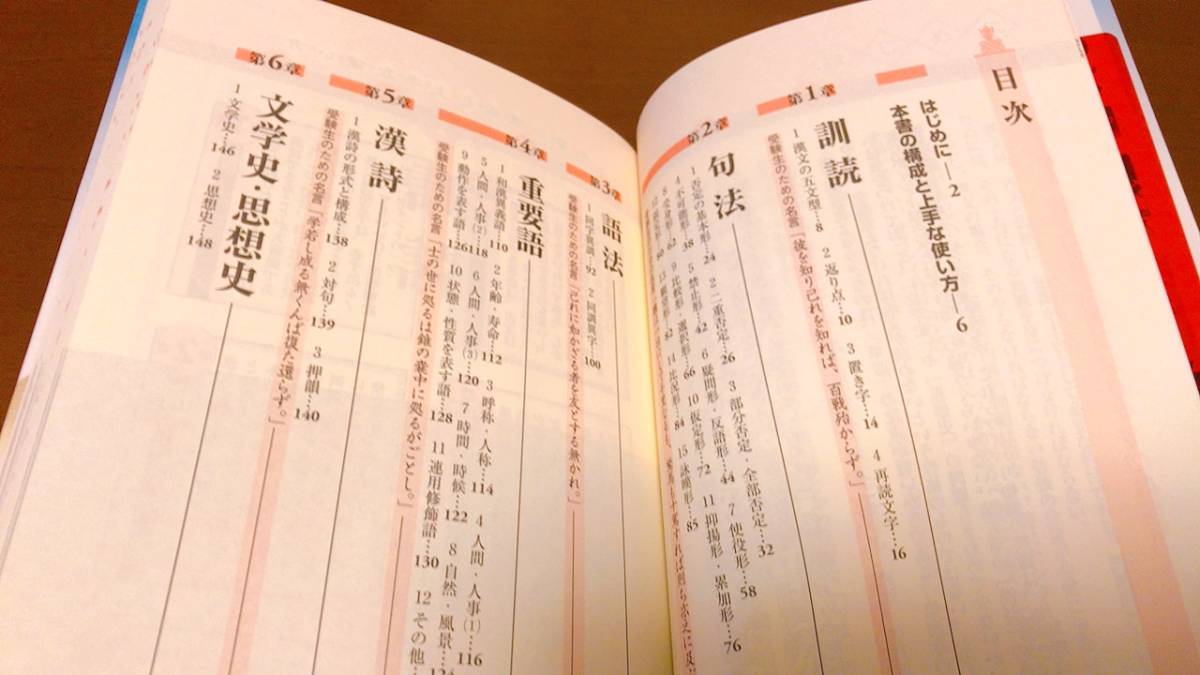 目次
はじめに―2
本書の構成と上手な使い方―6
第1章
訓読
1 漢文の五文型…8 2 返り点…10 3 置き字…14 4 再読文字…16
受験生のための名言「彼を知り己れを知れば、百戦殆からず。」
第2章
句法
1 否定の基本形…24 2 二重否定…26 3 部分否定・全部否定…32
4 不可能形…38 5 禁止形…42 6 疑問形・反語形…44 7 使役形…58
8 受身形…62 9 比較形・選択形…66 10 仮定形…72 11 抑揚形・累加形…76
80 82 14 比況形…84 15 詠嘆形…85
第3章
語法
1 同字異訓…92 2 同訓異字…100
受験生のための名言「己れに如かざる者を友とする無かれ。」
第4章
重要語
1 和漢異義語…110 2 年齢・寿命…112 3 呼称・人称…114 4 人間・人事(1)…116
5 人間・人事(2)…118 6 人間・人事(3)…120 7 時間・時候…122 8 自然・風景
9 動作を表す語…126 10 状態・性質を表す語…128 11 連用修飾語…130 12 その他
受験生のための名言「士の世に処るは錐の嚢中に処るがごとし。」
第5章
漢詩
1 漢詩の形式と構成…138 2 対句…139 3 押韻…140
受験生のための名言「学若し成る無くんば復た還らず。」
第6章
文学史・思想史
1 文学史…146 2 思想史…148